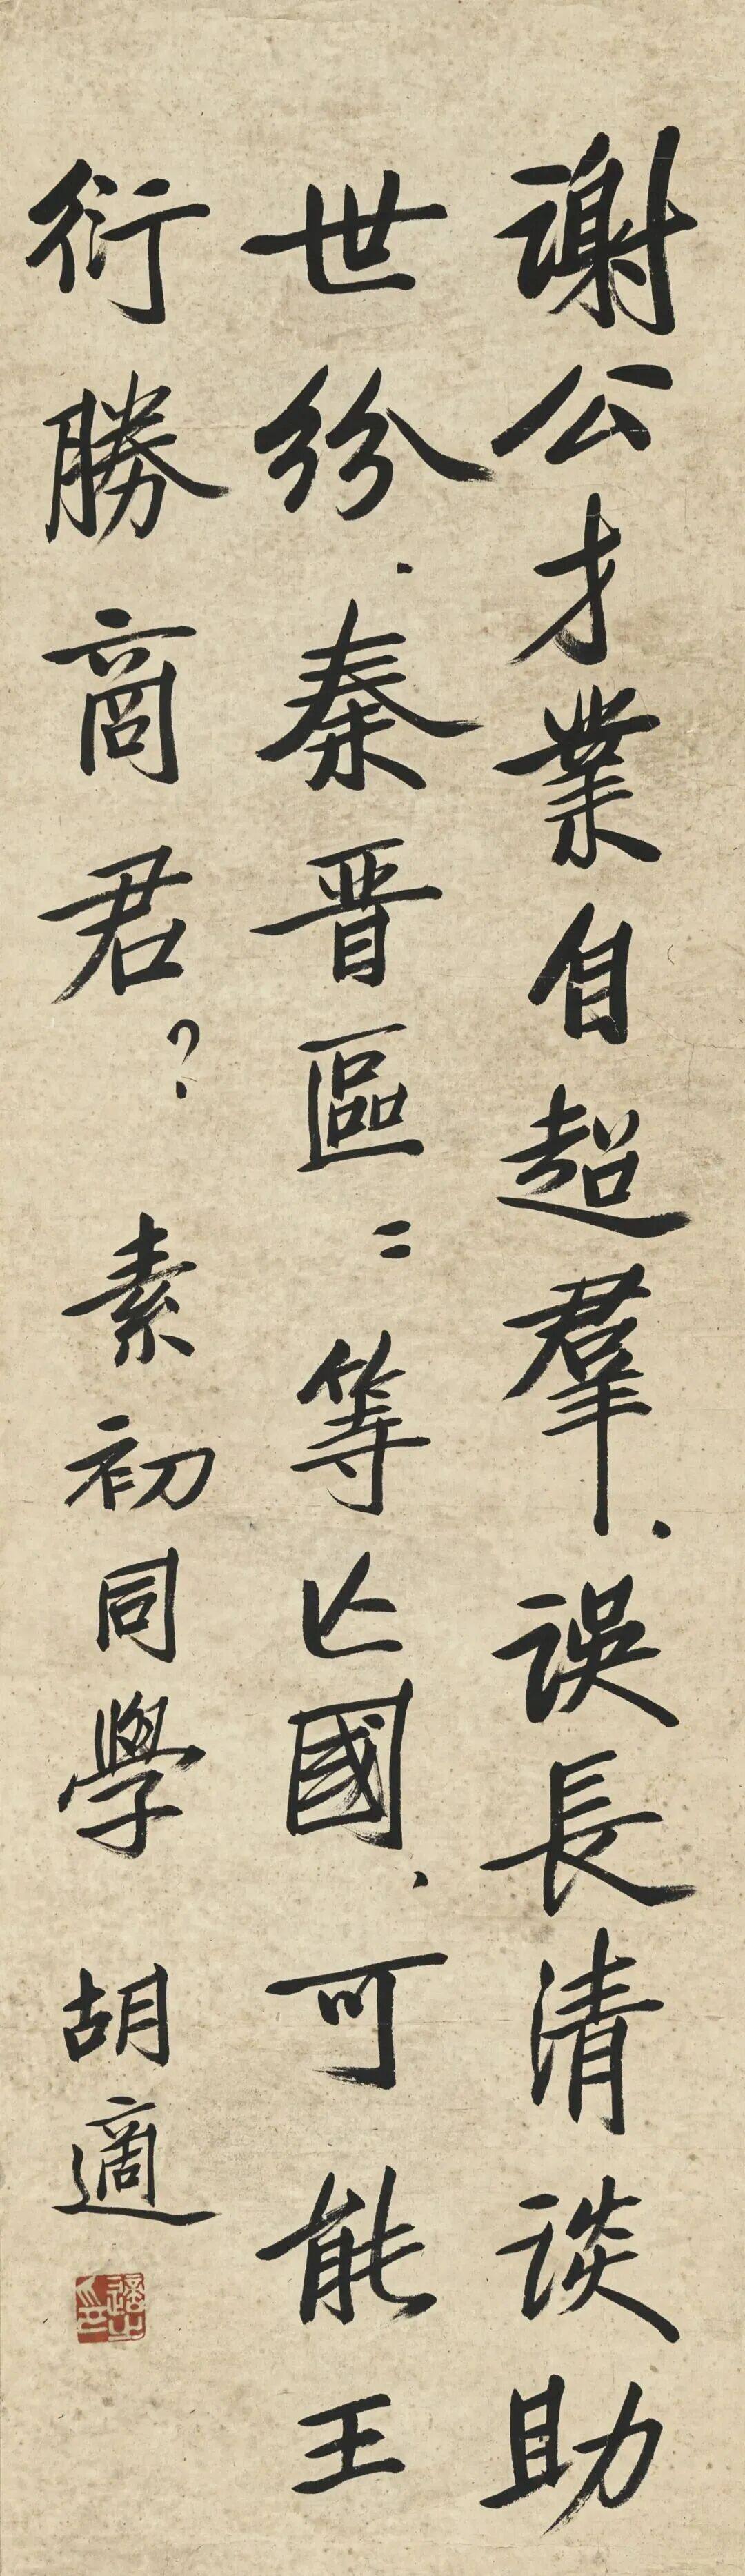 謝公才業自超羣．誤長清談助
世紛．秦晋區〻等亾國．可能王
衍勝商君？　素初同學　胡適
適之